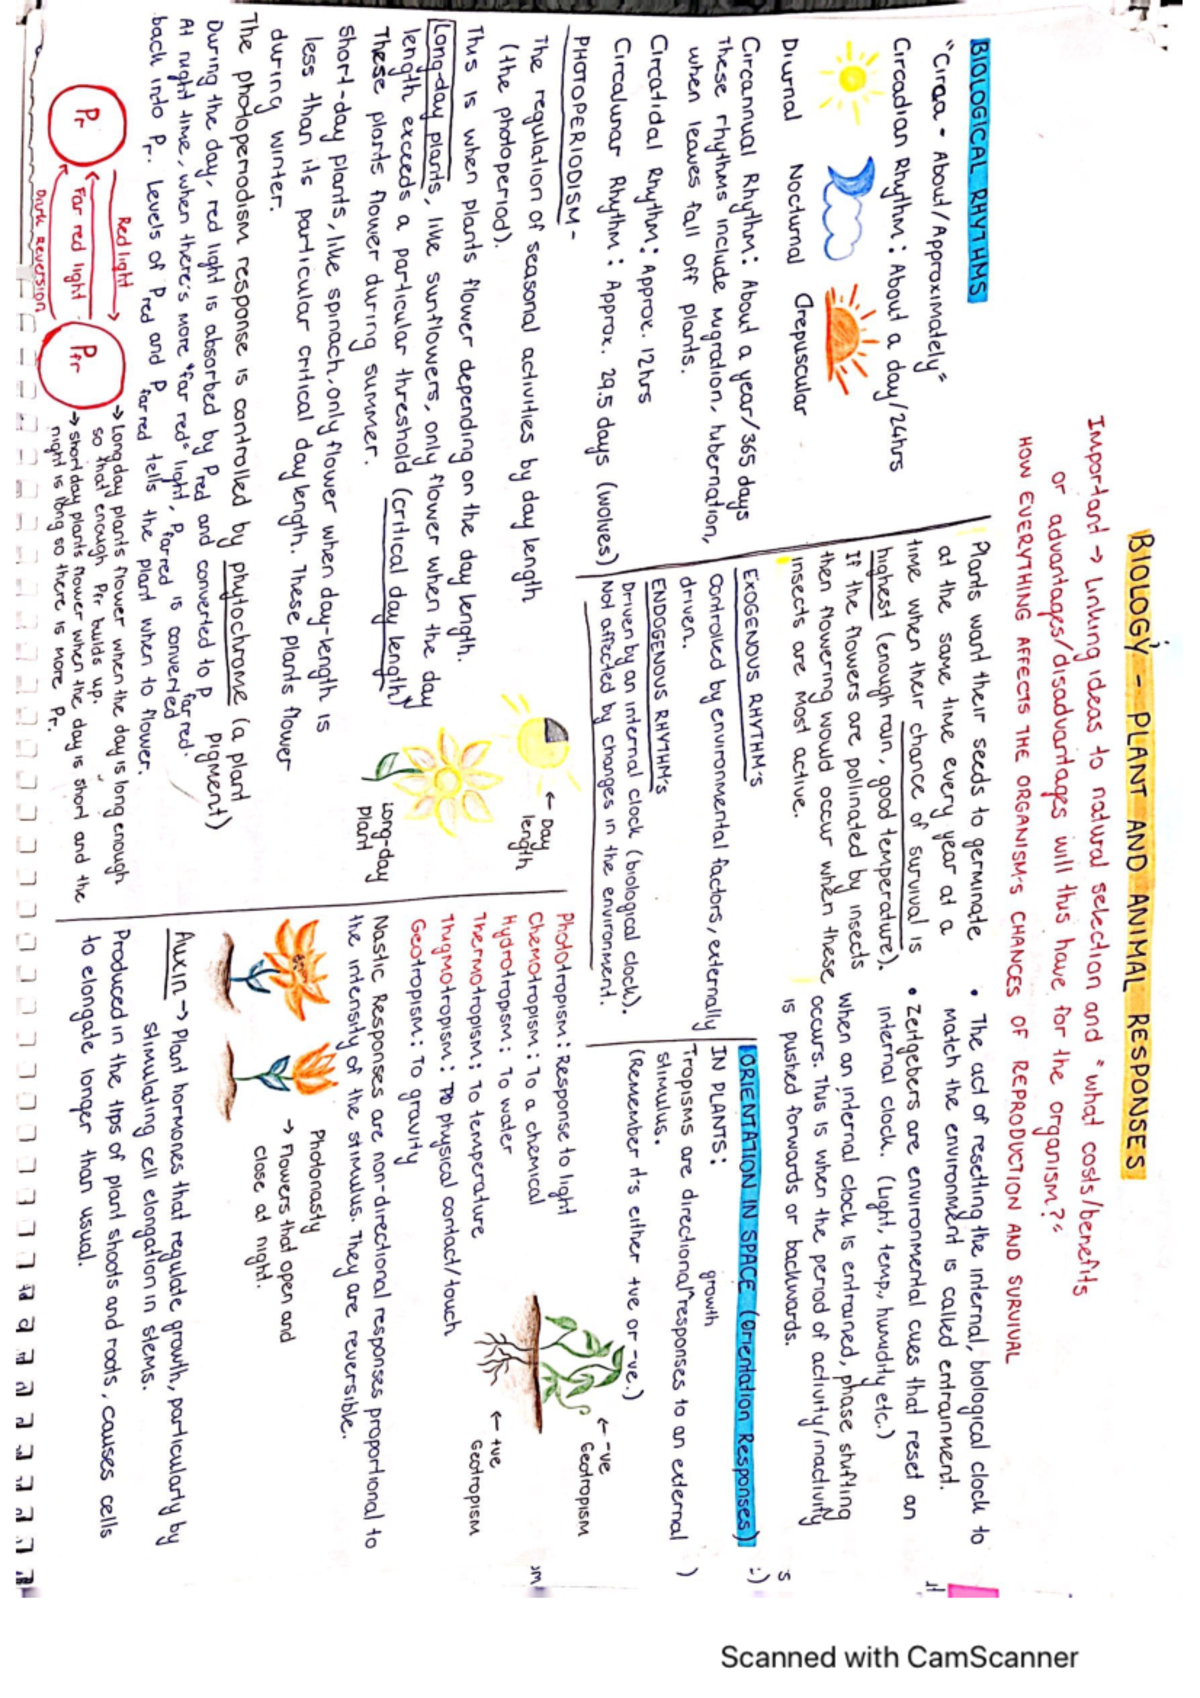 BIOLOGY - PLANT AND ANIMAL RESPONSES
Important → linking ideas to natural selection and "what costs/benefits
or advantages/disadvantages will this have for the organism?"
HOW EVERYTHING AFFECTS THE ORGANISM'S CHANCES OF REPRODUCTION AND SURVIVAL
BIOLOGICAL RHYTHMS
"Circa - About/Approximately"
Circadian Rhythm: About a day/24hrs
Diurnal Nocturnal Crepuscular
Circannual Rhythm: About a year/365 days
These rhythms include migration, hibernation,
when leaves fall off plants.
Circatidal Rhythm: Approx. 12hrs
Circalunar Rhythm: Approx. 29.5 days (wolves)
PHOTOPERIODISM -
The regulation of seasonal activities by day length
(the photoperiod).
This is when plants flower depending on the day length.
Long-day plants, like sunflowers, only flower when the day
length exceeds a particular threshold (critical day length)
These plants flower during summer.
short-day plants, like spinach, only flower when day-length is
less than its particular critical day length. These plants flower
during winter.
← Day
length
Long-day
plant
The photoperiodism response is controlled by phytochrome (a plant
pigment)
During the day, red light is absorbed by Pred and converted to P far red.
At night time, when there's more "far red" light, Pfarred is converted
back into Pr. Levels of Pred and P far red tells the plant when to flower.
Red light
Pr
Far red light
Pfr
Dark reversion
→ Long day plants flower when the day is long enough
so that enough Pfr builds up.
→ short day plants flower when the day is short and the
night is long so there is more Pr.
Plants want their seeds to germinate
at the same time every year at a
time when their chance of survival is
highest (enough rain, good temperature).
If the flowers are pollinated by insects
then flowering would occur when these
insects are most active.
EXOGENOUS RHYTHM'S
Controlled by environmental factors, externally
driven.
ENDOGENOUS RHYTHM's
Driven by an internal clock (biological clock).
Not affected by changes in the environment.
• The act of resetting the internal, biological clock to
match the environment is called entrainment.
• Zeitgebers are environmental cues that reset an
internal clock. (Light, temp, humidity etc.)
When an internal clock is entrained, phase shifting
occurs. This is when the period of activity/inactivity
is pushed forwards or backwards.
ORIENTATION IN SPACE (Orientation Responses)
IN PLANTS:
growth
Tropisms are directional ^responses to an external
stimulus.
(Remember it's either +ve or -ve.)
Phototropism: Response to light
Chemotropism: To a chemical
Hydrotropism: To water
Thermotropism: To temperature
Thigmotropism: To physical contact/touch
Geotropism: To gravity
← -ve
Geotropism
← +ve
Geotropism
Nastic Responses are non-directional responses proportional to
the intensity of the stimulus. They are reversible.
Photonasty
→ Flowers that open and
close at night.
Auxin → Plant hormones that regulate growth, particularly by
stimulating cell elongation in stems.
Produced in the tips of plant shoots and roots, causes cells
to elongate longer than usual.
Scanned with CamScanner